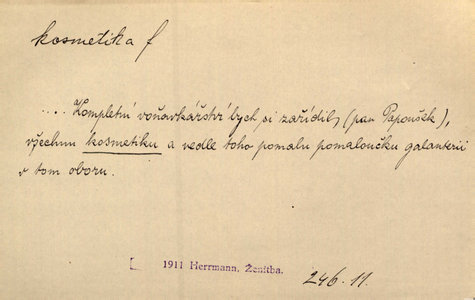 kosmetika f
.... Kompletní voňavkářství bych si zařídil, (pan Papoušek),
všechnu kosmetiku a vedle toho pomalu pomaloučku galanterii
v tom oboru.
1911 Herrmann, Ženitba.
246.11.